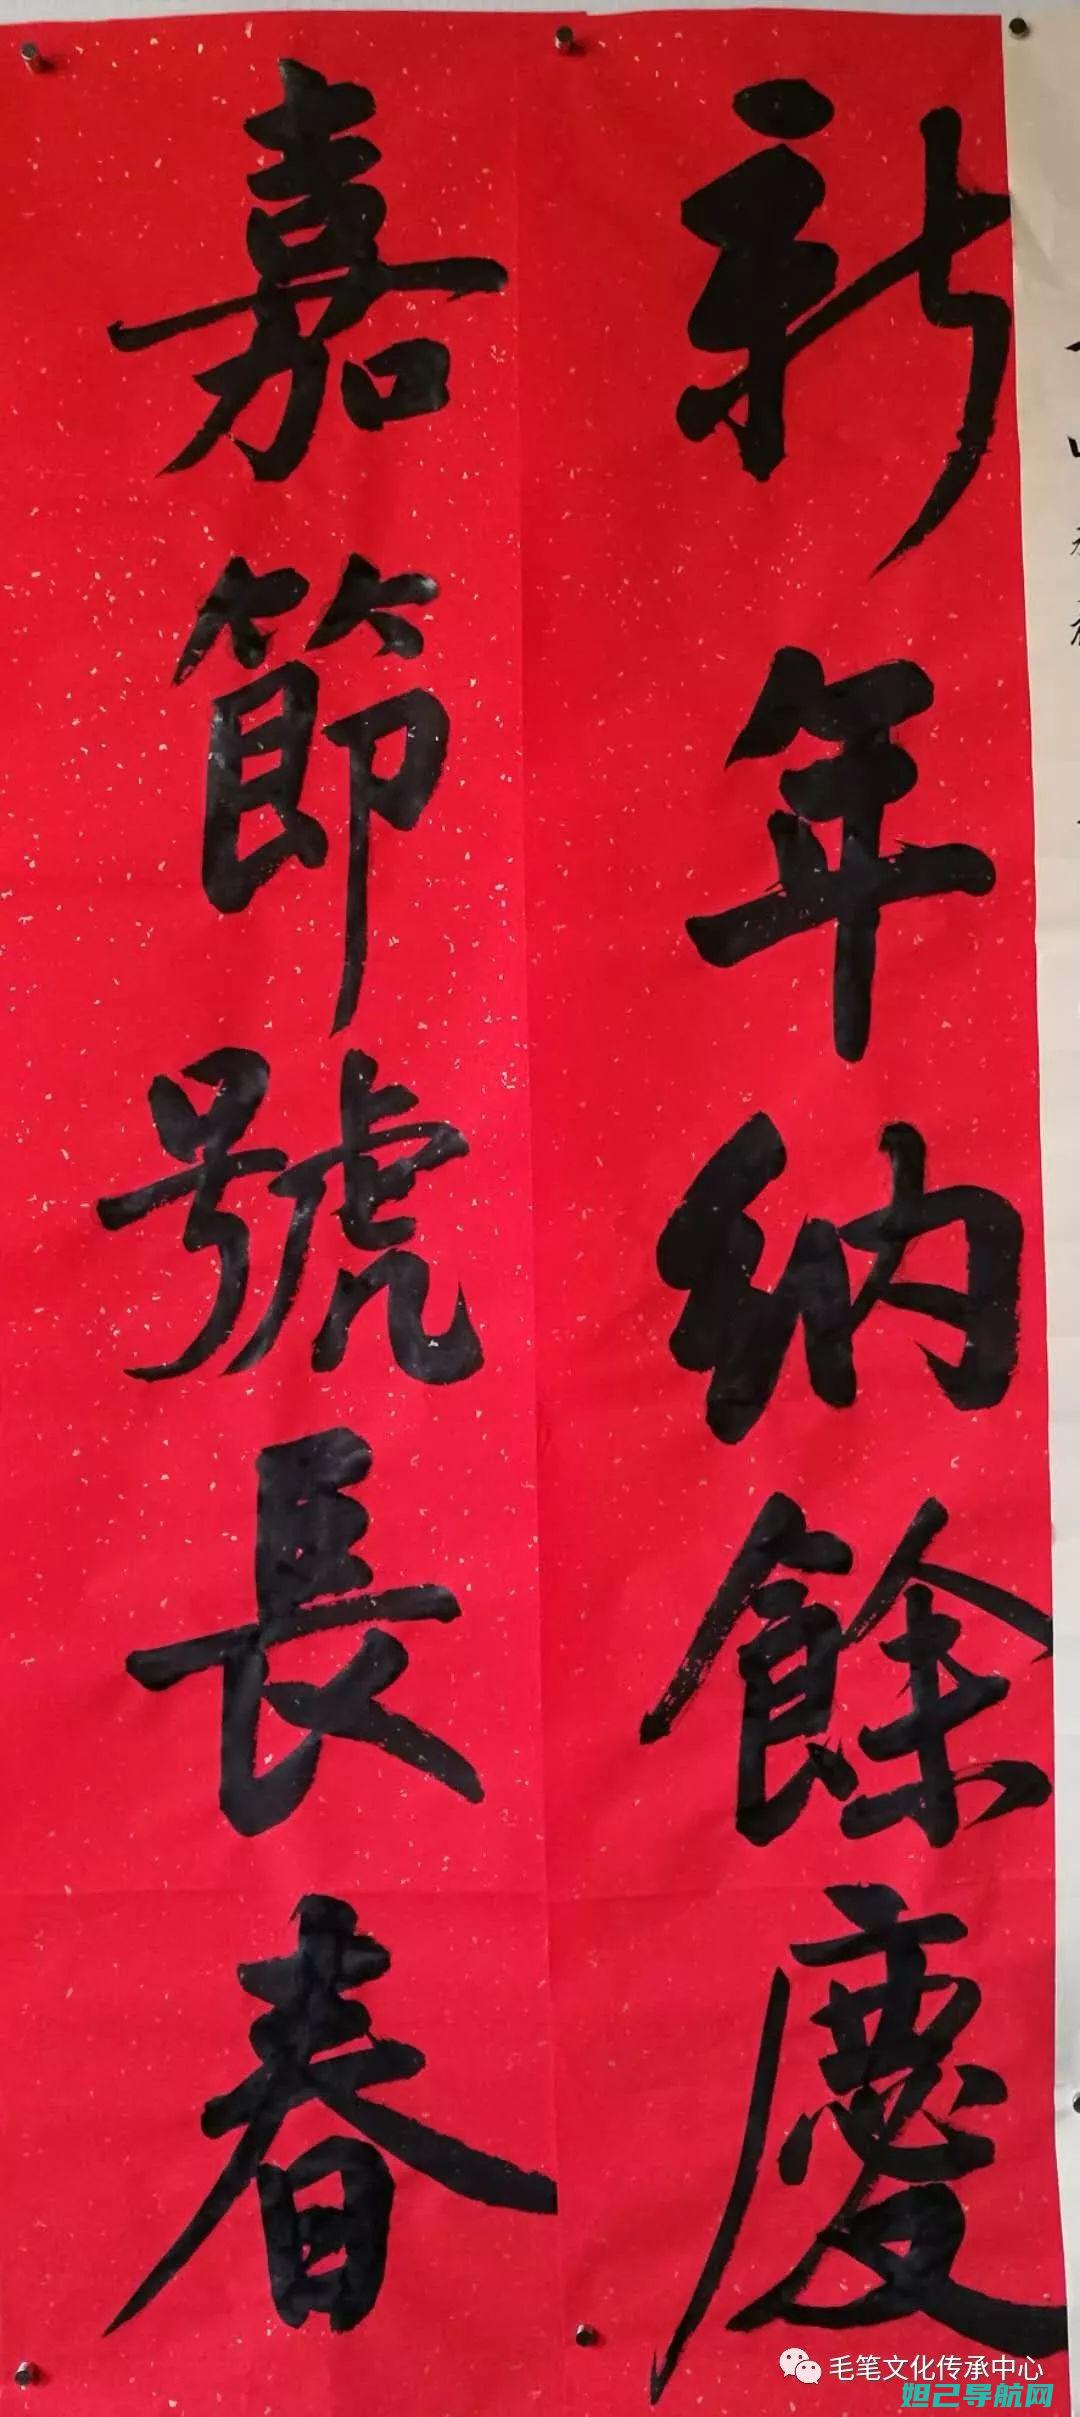 新年納餘慶
嘉節號長春
毛笔文化传承中心
妲己导航网